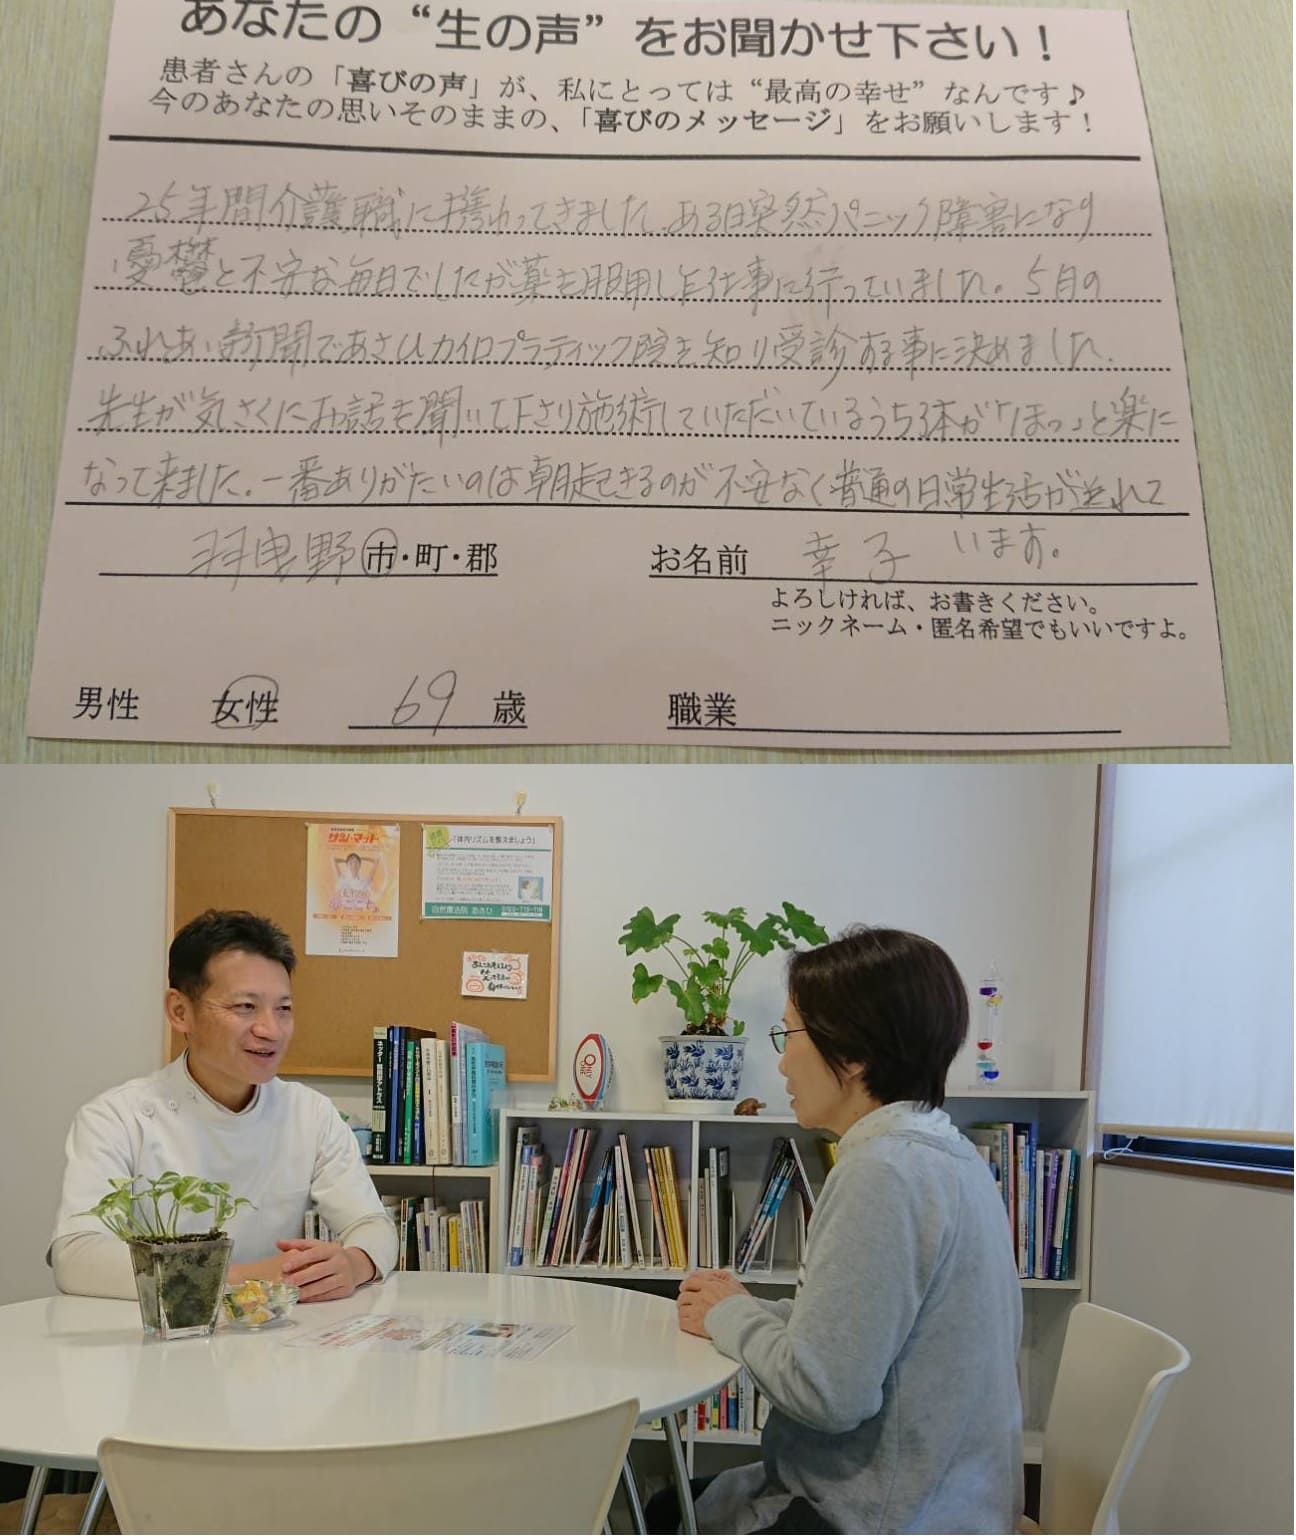 あなたの“生の声”をお聞かせ下さい！
患者さんの「喜びの声」が、私にとっては“最高の幸せ”なんです♪
今のあなたの思いそのままの、「喜びのメッセージ」をお願いします！
25年間介護職に携わってきました。ある日突然パニック障害になり
憂欝と不安な毎日でしたが薬も服用し乍仕事に行っていました。5月の
ふれあい新聞であさひカイロプラティック院を知り受診する事に決めました。
先生が気さくにお話も聞いて下さり施術していただいているうち体が「ほっ」と楽に
なって来ました。一番ありがたいのは朝起きるのが不安なく普通の日常生活が送れて
います。
羽曳野 市・町・郡
お名前 幸子
よろしければ、お書きください。
ニックネーム・匿名希望でもいいですよ。
男性 女性 69 歳 職業
サン・マット
「体内リズムを整えましょう」
自然療法院 あさひ